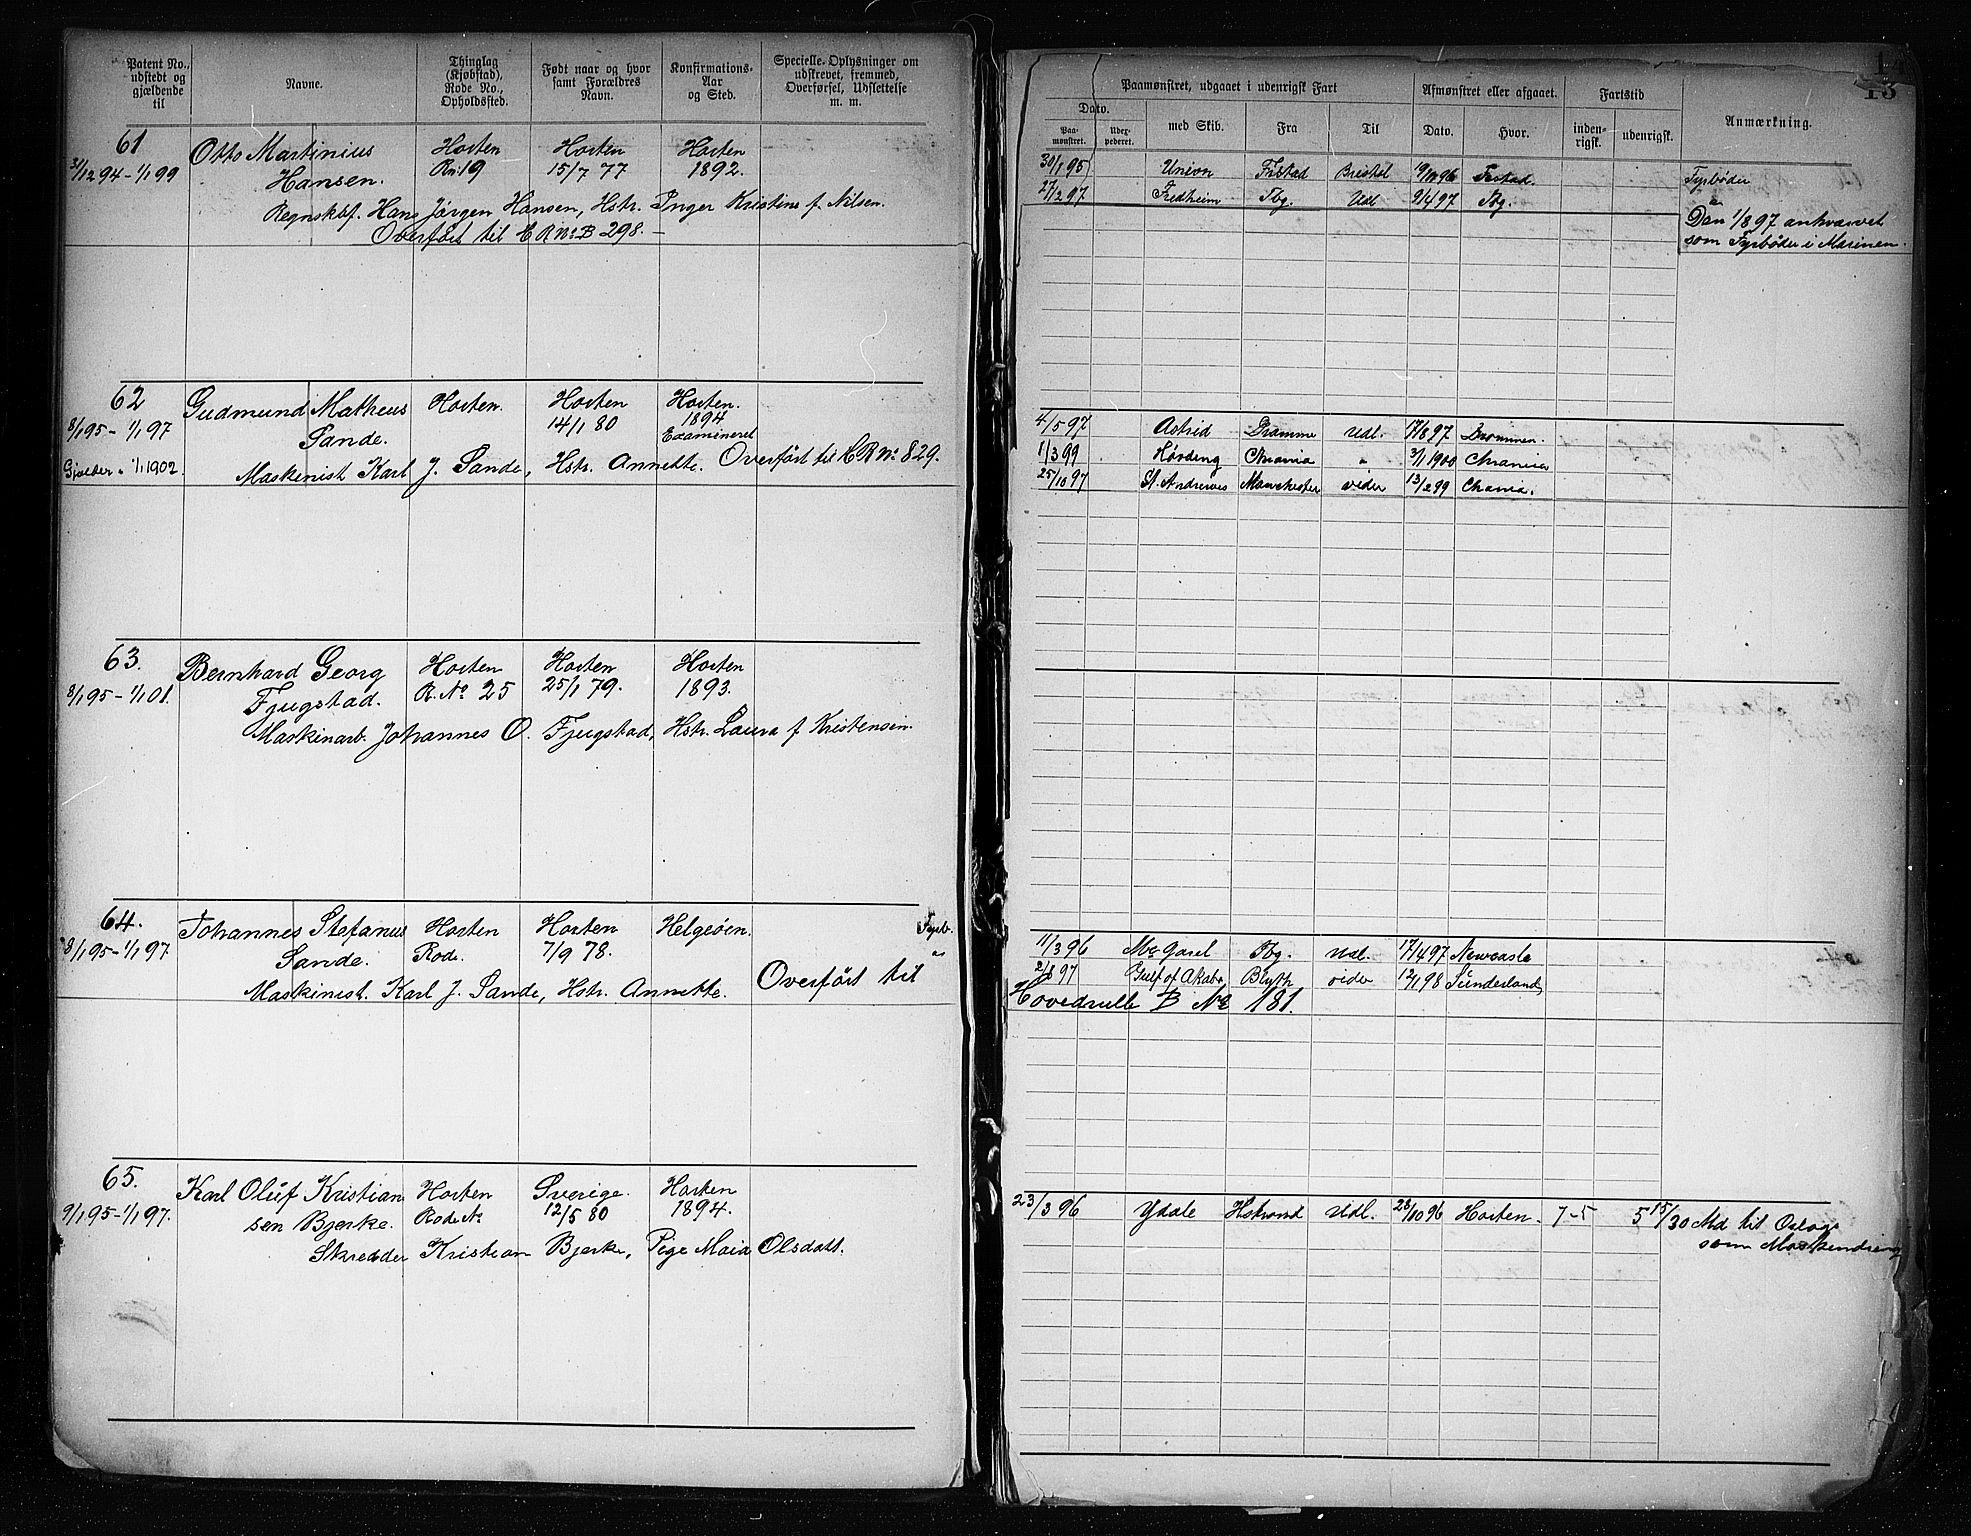 Patent No., udstedt og gjældende til
Navne.
Thinglag (Kjøbstad), Rode No., Opholdssted.
Født naar og hvor samt Forældres Navn.
Konfirmations- Aar og Sted.
Specielle Oplysninger om udskrevet, fremmed, Overførsel, Udslettelse m. m.
61 Otto Martinius Horten Horten Horten
31/12 94 - 1/1 99 Hansen. R.No 19 15/7 77 1892.
Regnskbf. Hans Jørgen Hansen, Hstr. Inger Kristine f. Nilsen.
Overført til H R No B 298. -
62 Gudmund Matheus Horten. Horten Horten.
8/1 95 - 1/1 97 Sande. 14/1 80 1894
Examineret
Gjælder " 1/1 1902. Maskinist Karl J. Sande, Hstr. Annette. Overført til H R No 829.
63. Bernhard Georg Horten Horten Horten
8/1 95 - 1/1 01. Fjugstad. R. No 25 25/1 79. 1893.
Maskinarb. Johannes O. Fjugstad, Hstr. Laura f Kristensen.
64. Johannes Stefanus Horten Horten Helgeøen.
8/1 95 - 1/1 97. Sande. Rode. 7/9 78.
Maskinist. Karl J. Sande, Hstr. Annette. Overført til
65. Karl Oluf Kristian Horten Sverige. Horten
9/1 95 - 1/1 97. sen Bjerke. Rode No 12/5 80 1894.
Skrædder Kristian Bjerke, Pige Maia Olsdatt.
13
Paamønstret, udgaaet i udenrigsk Fart
Afmønstret eller afgaaet.
Fartstid
Anmærkning.
Dato.
Paa- mønstret.
med Skib.
Fra
Til
Dato.
Hvor.
inden- rigsk.
udenrigsk.
30/1 95 Union Frstad Bristol 19/10 96 Frstad. Fyrbøder
27/2 97 Fredheim Tbg. Udl 9/4 97 Tbg.
Den 1/8 97 anhværvet
som Fyrbøder i Marinen.
4/5 97 Astrid Dramme Udl. 17/8 97 Drammen.
1/3 99 Hørding Chrania " 3/1 1900 Chrania
25/10 97 St. Andrews Manchester vider 13/2 99 Chania.
Fyrb.
11/3 96 Mc Garel Tbg. Udl. 17/4 97 Newcastle
2/8 97 Gulf of Akaba, Blyth vider 12/1 98 Sunderland,
Hovedrulle B No 181.
23/3 96 Ydale Hstrand Udl. 28/10 96 Horten. 7-5 5 15/30 Md til Oslogs
som Maskindreng